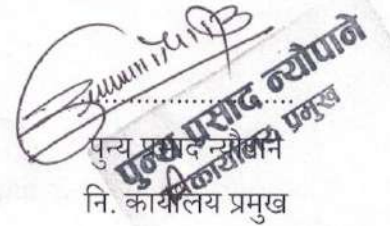 ....................
पुन्य प्रसाद न्यौपाने
नि. कार्यालय प्रमुख
पुन्य प्रसाद न्यौपाने
नि. कार्यालय प्रमुख